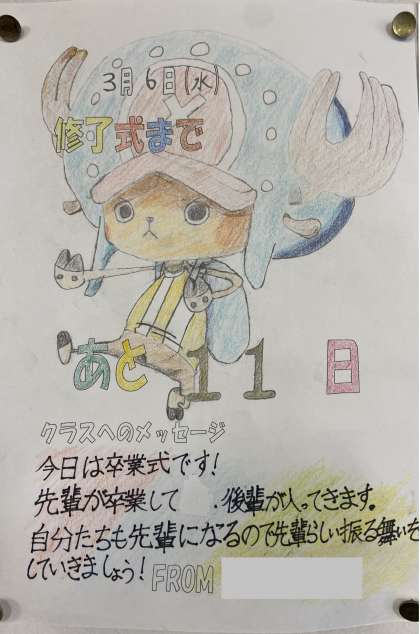 3月6日(水)
修了式まで
あと11日
クラスへのメッセージ
今日は卒業式です!
先輩が卒業して、後輩が入ってきます。
自分たちも先輩になるので先輩らしい振る舞いを
していきましょう!
FROM